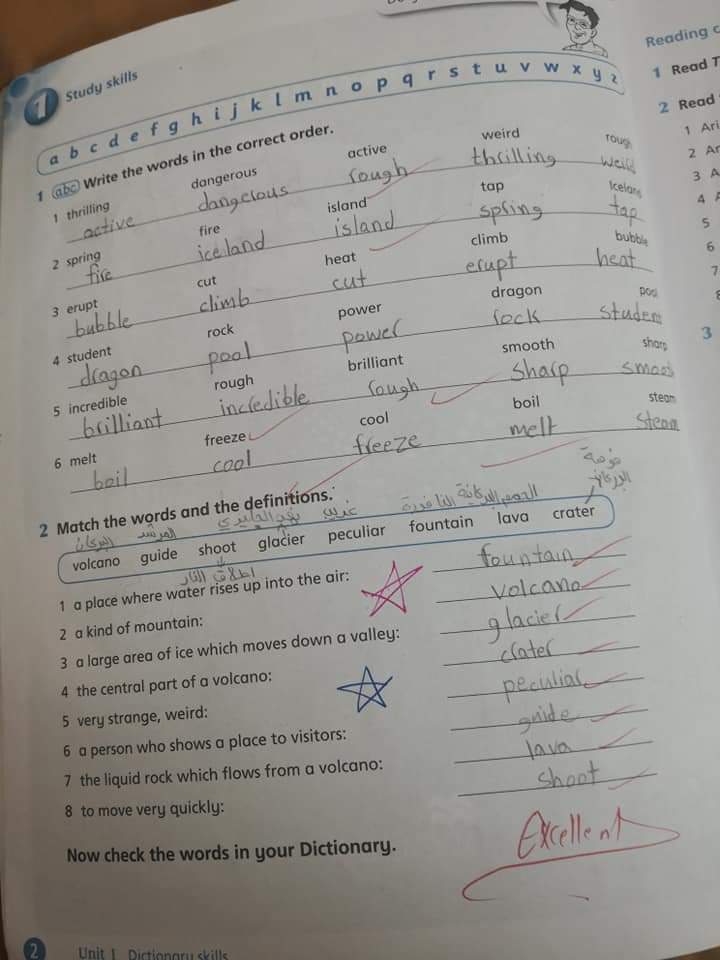 1 Study skills
a b c d e f g h i j k l m n o p q r s t u v w x y z
1 abc Write the words in the correct order.
1 thrilling dangerous active weird rough
active dangerous rough thrilling weird
2 spring fire island tap Iceland
fire iceland island spring tap
3 erupt cut heat climb bubble
bubble climb cut erupt heat
4 student rock power dragon pool
dragon pool power rock student
5 incredible rough brilliant smooth sharp
brilliant incredible rough sharp smooth
6 melt freeze cool boil steam
boil cool freeze melt steam
2 Match the words and the definitions.
البركان المرشد غريب النافورة الحمم البركانية
volcano guide shoot glacier peculiar fountain lava crater
اطلاق النار
1 a place where water rises up into the air: fountain
2 a kind of mountain: volcano
3 a large area of ice which moves down a valley: glacier
4 the central part of a volcano: crater
5 very strange, weird: peculiar
6 a person who shows a place to visitors: guide
7 the liquid rock which flows from a volcano: lava
8 to move very quickly: shoot
Now check the words in your Dictionary.
Excellent
2 Unit 1 Dictionary skills
Reading
1 Read
2 Read
1 Ari
2
3
4
5
6
7
3